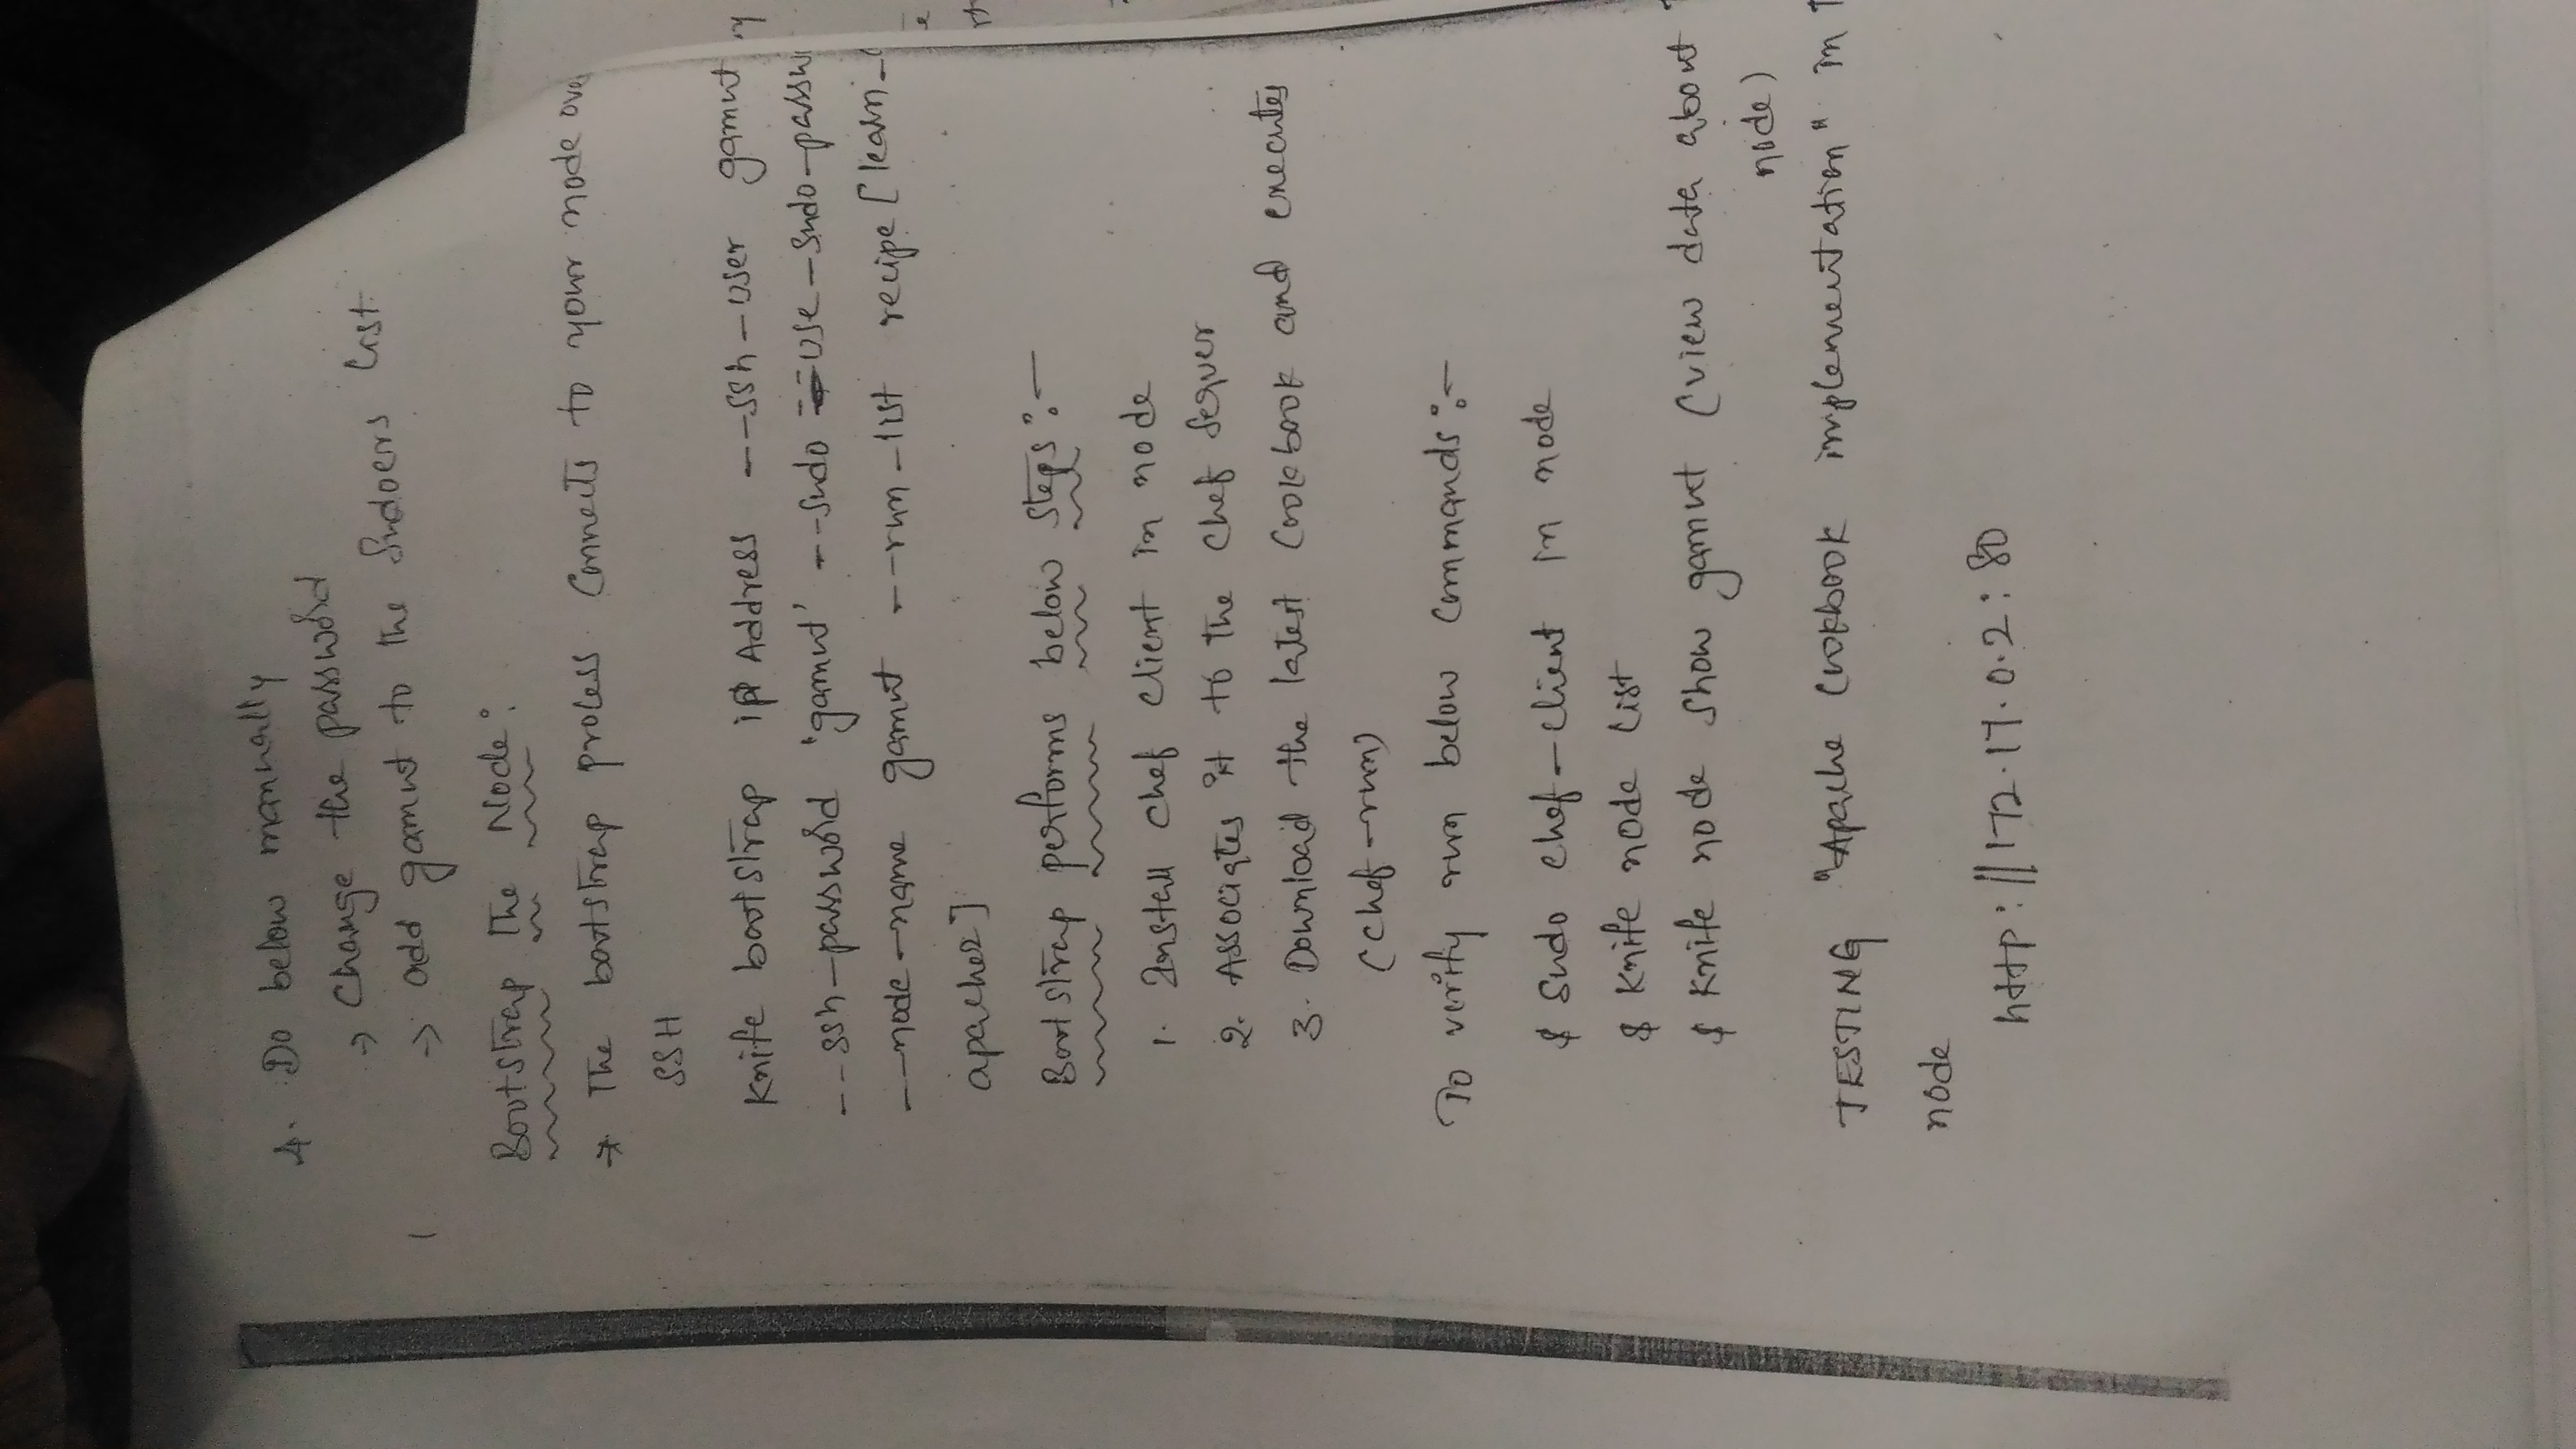 4. Do below manually
→ Change the password
→ add gamut to the Sudoers list
Bootstrap The Node:
* The bootstrap process Connects to your node ove
SSH
Knife bootstrap ip Address --ssh-user gamut
--ssh-password 'gamut' --sudo --use-sudo-passw
--node-name gamut --run-list recipe[learn-
apache2]
Bootstrap performs below steps:-
1. Install chef client in node
2. Associates it to the chef server
3. Download the latest Cookbook and executes
(chef-run)
To verify run below Commands:-
$ Sudo chef-client in node
$ Knife node list
$ Knife node show gamut (view data about
node)
TESTING "Apache Cookbook implementation" in
node
http://172.17.0.2:80